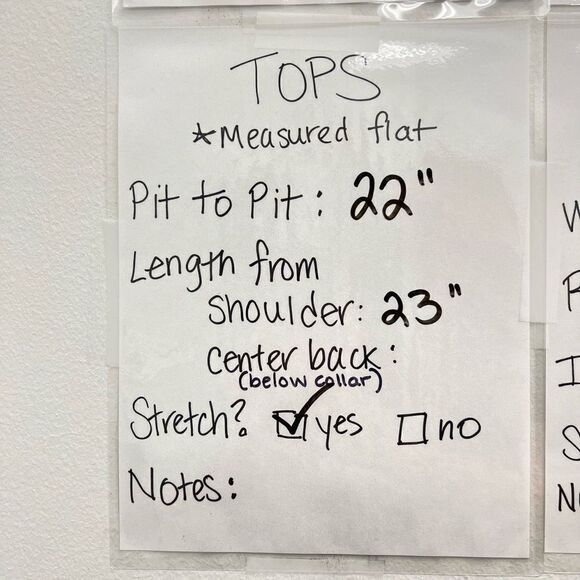 TOPS
*Measured flat
Pit to Pit: 22"
Length from
shoulder: 23"
center back:
(below collar)
Stretch? ☑ yes ☐ no
Notes: